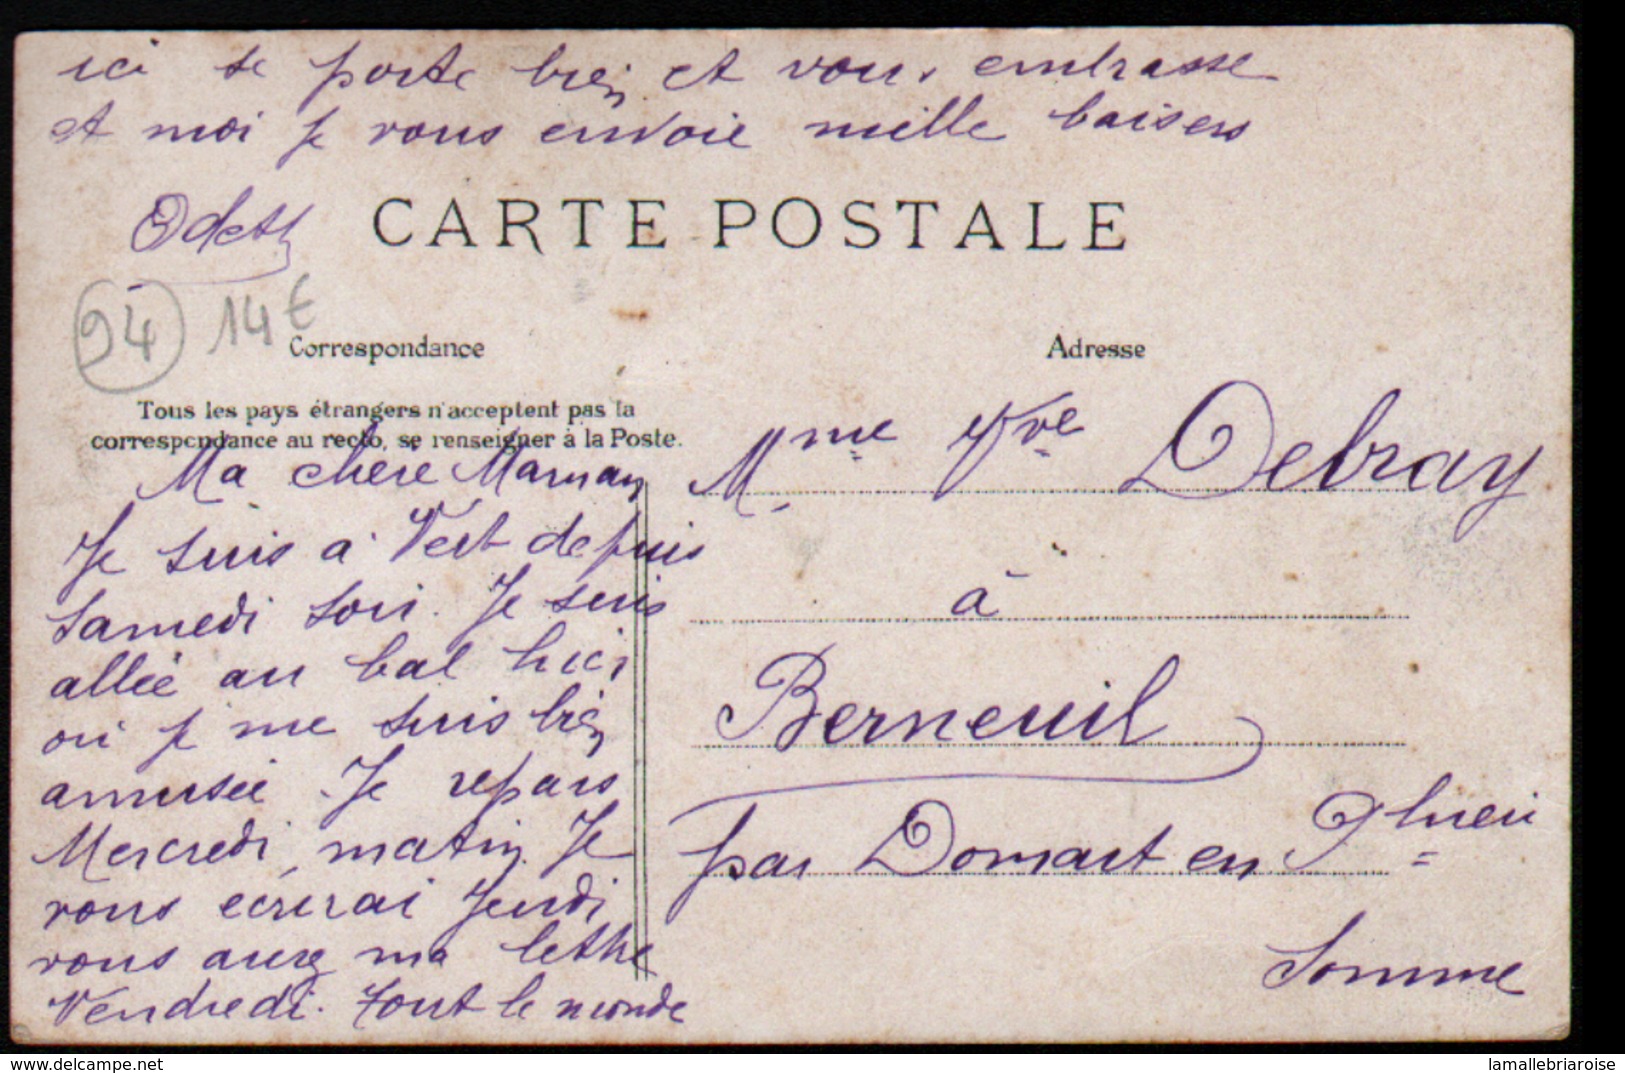 ici se porte bien et vous embrasse
et moi je vous envoie mille baisers
Odette
CARTE POSTALE
94 14€
Correspondance
Tous les pays étrangers n'acceptent pas la
correspondance au recto, se renseigner à la Poste.
Ma chère Maman
Je suis à Vert depuis
Samedi soir. Je suis
allée au bal hier
où je me suis bien
amusée. Je repars
Mercredi matin. Je
vous écrirai Jeudi
vous aurez ma lettre
Vendredi. Tout le monde
Adresse
Mme Vve Debray
à
Berneuil
par Domart en Pthieu
Somme
delcampe.net
lamallebriaroise